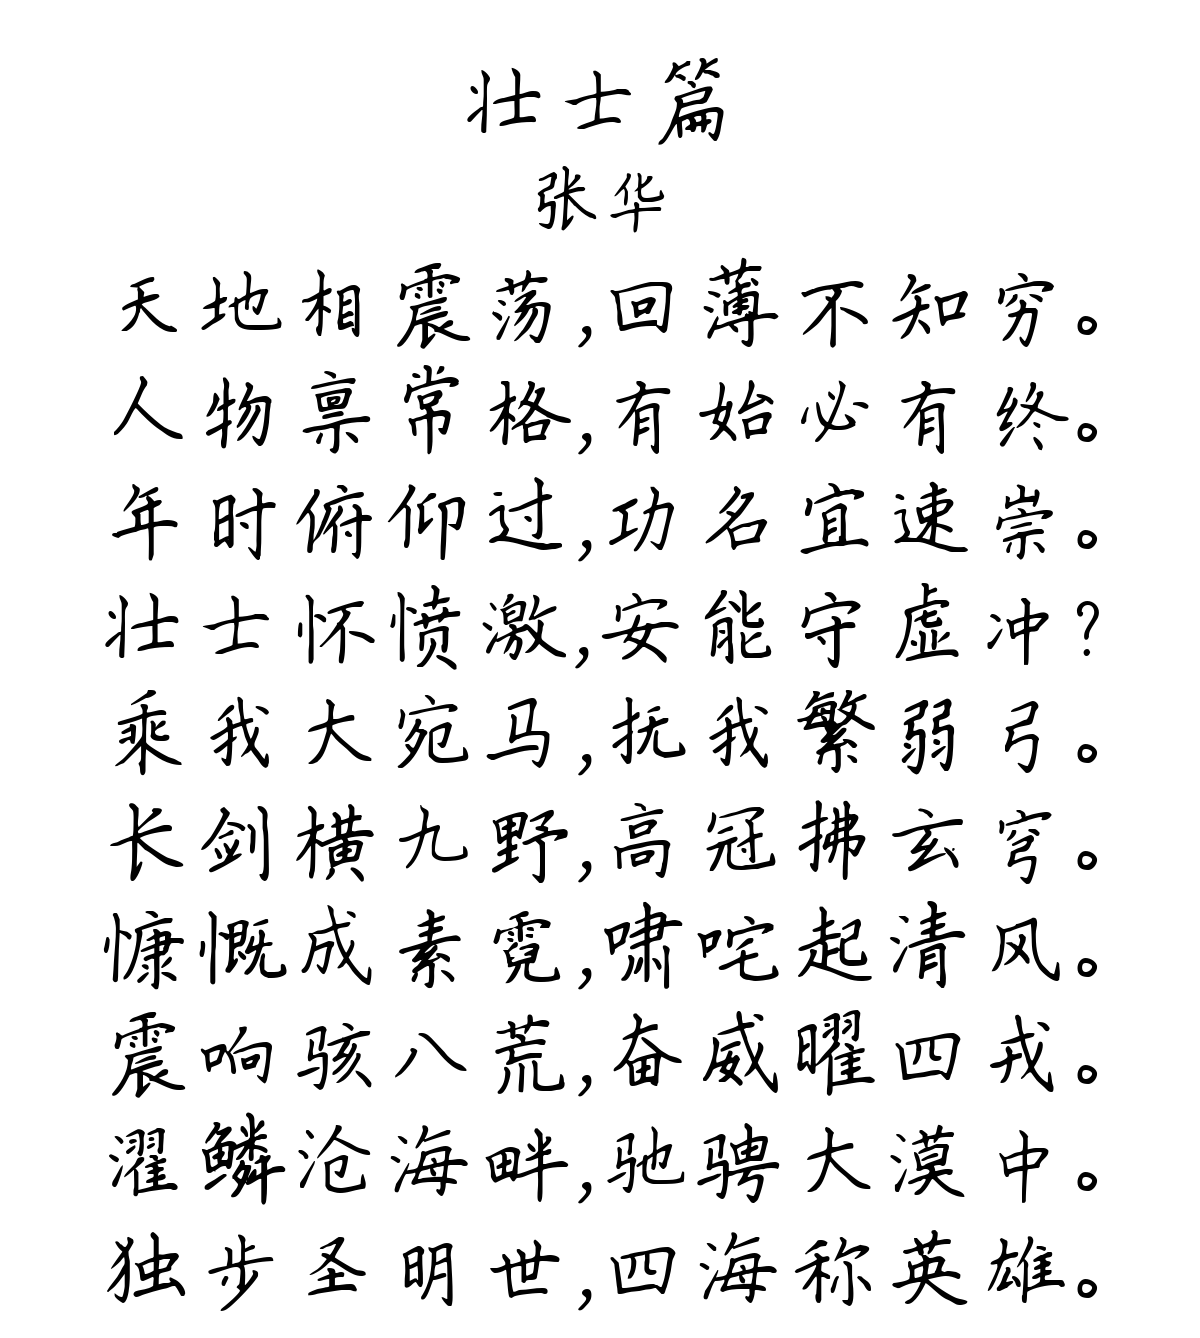 壮士篇
张华
天地相震荡,回薄不知穷。
人物禀常格,有始必有终。
年时俯仰过,功名宜速崇。
壮士怀愤激,安能守虚冲?
乘我大宛马,抚我繁弱弓。
长剑横九野,高冠拂玄穹。
慷慨成素霓,啸咤起清风。
震响骇八荒,奋威曜四戎。
濯鳞沧海畔,驰骋大漠中。
独步圣明世,四海称英雄。